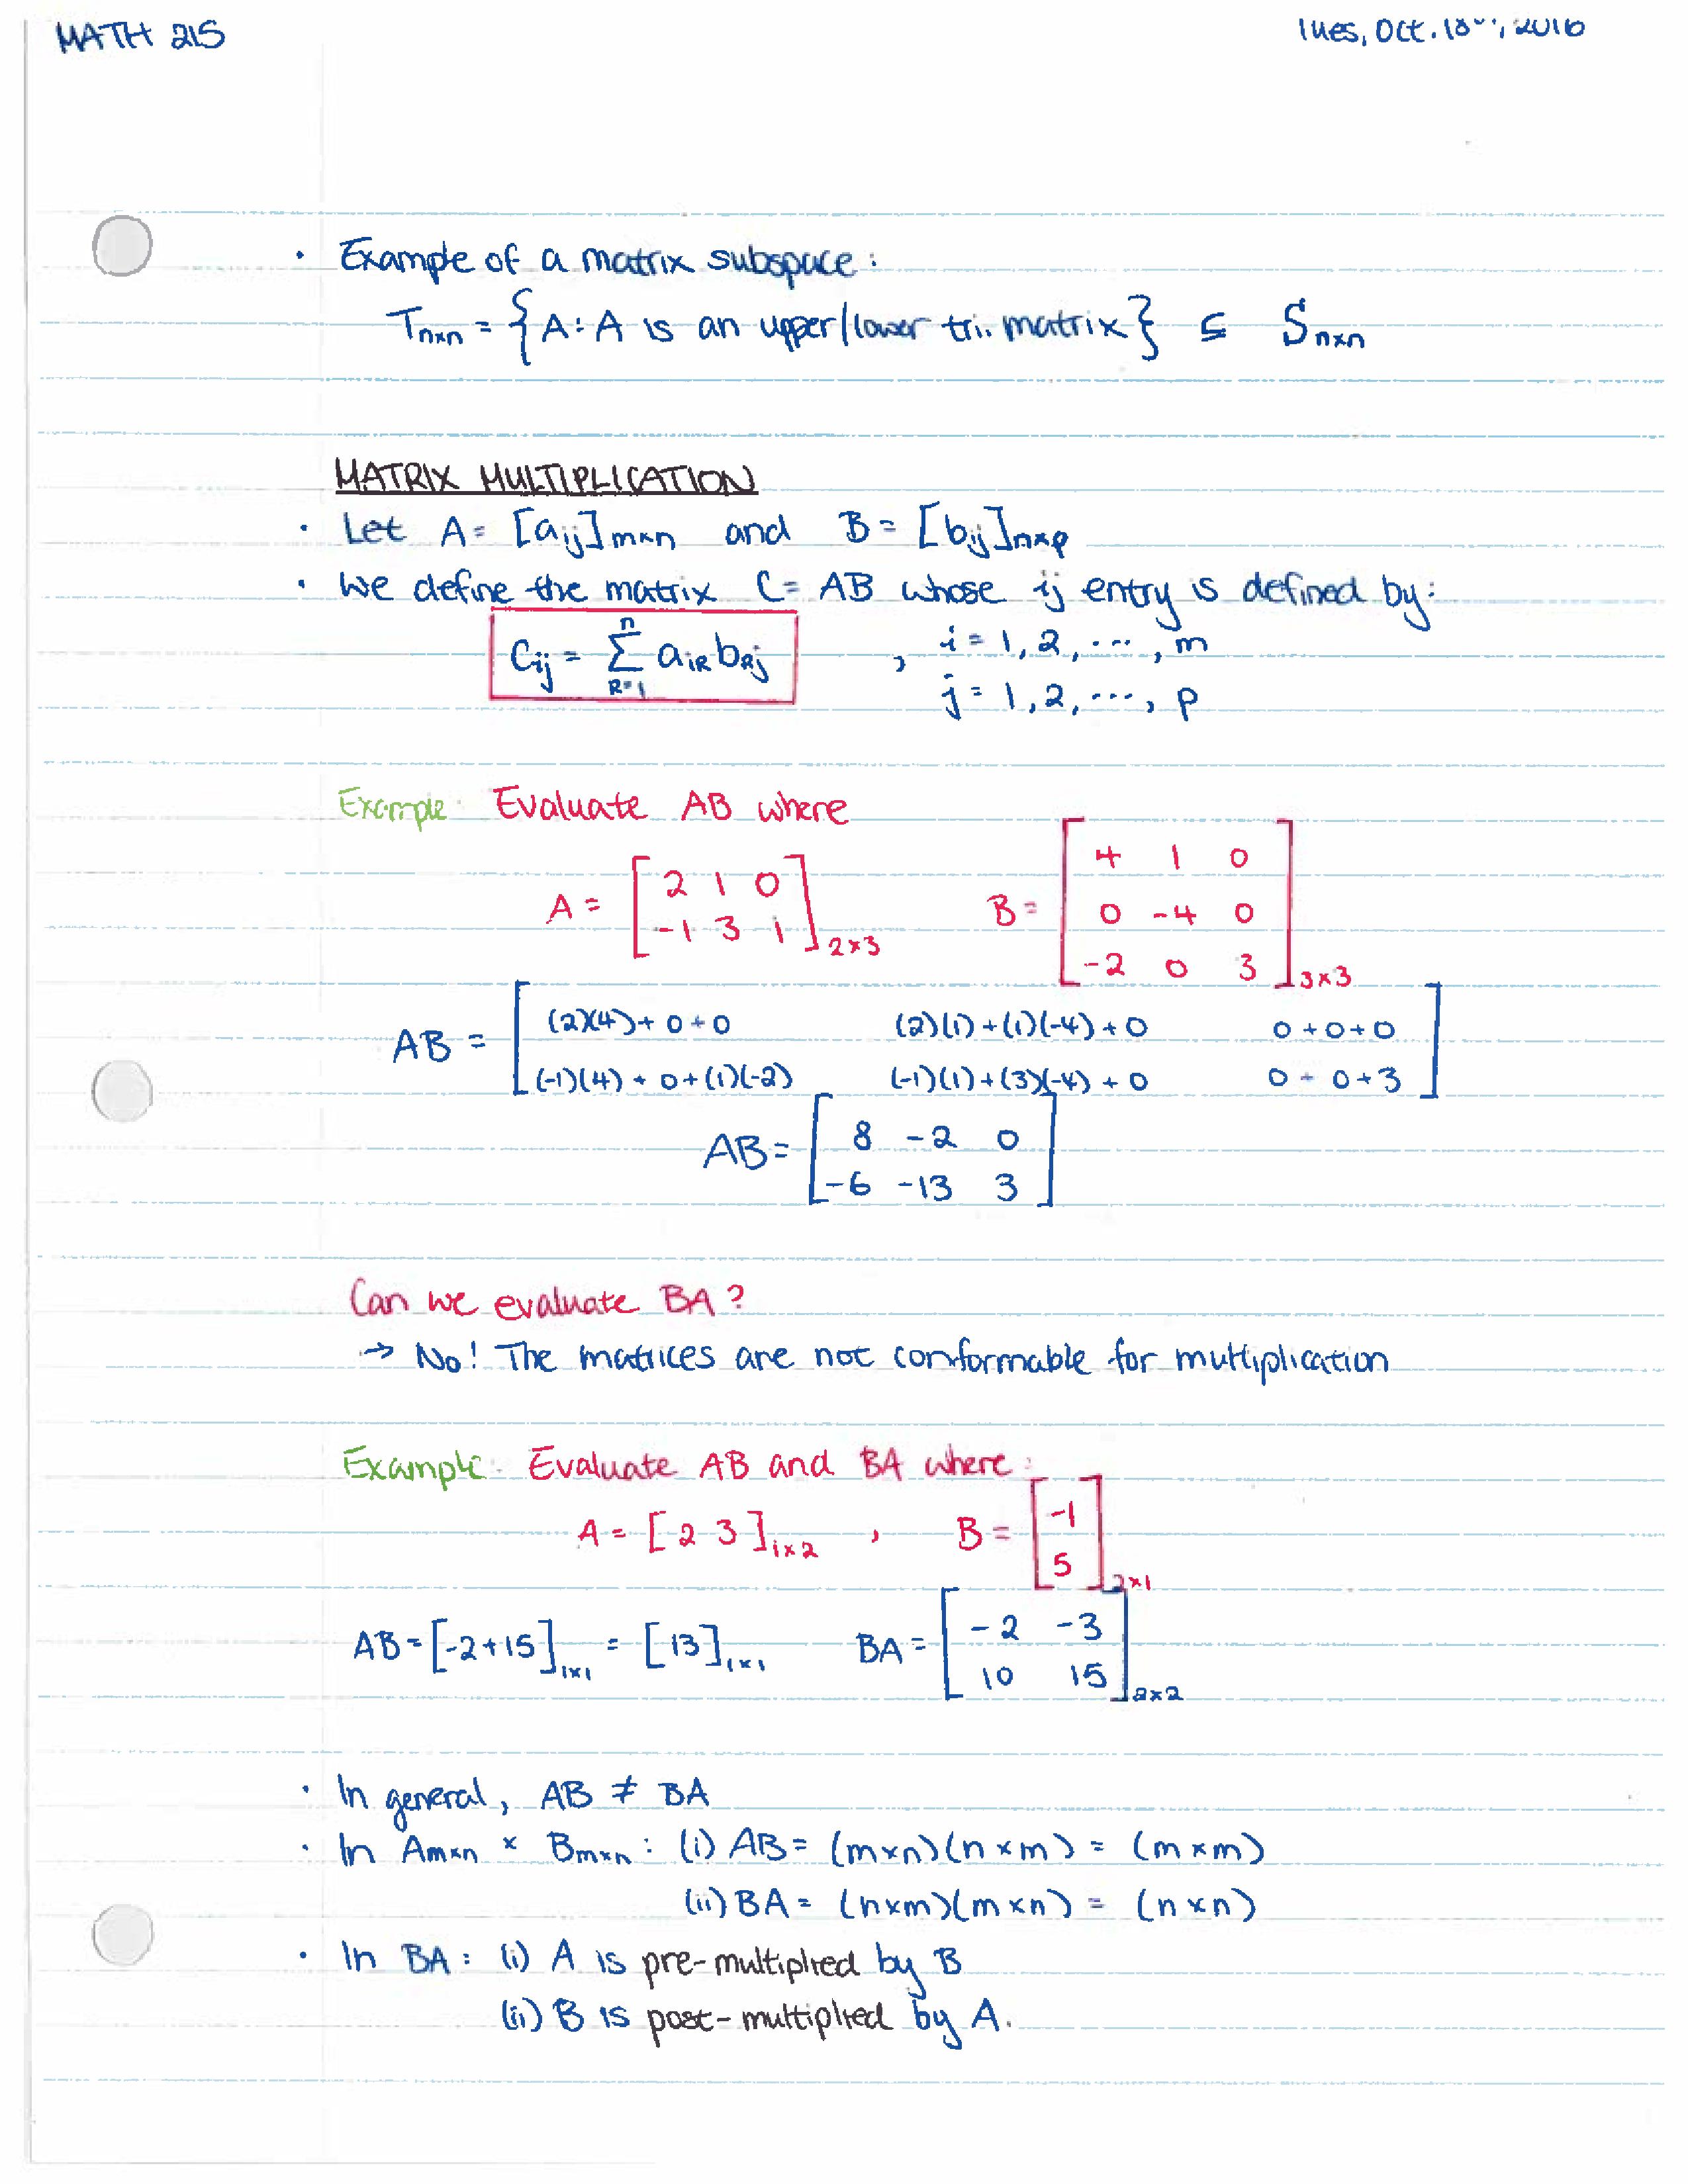 MATH 215
Tues, Oct. 18th, 2016
· Example of a matrix subspace:
Tnxn = { A : A is an upper/lower tri. matrix } ⊆ Snxn
MATRIX MULTIPLICATION
· Let A = [aij]mxn and B = [bij]nxp
· We define the matrix C = AB whose ij entry is defined by:
Cij = Σ(k=1 to n) aik bkj , i = 1, 2, ..., m
j = 1, 2, ..., p
Example: Evaluate AB where
A = [2 1 0; -1 3 1]2x3 B = [4 1 0; 0 -4 0; -2 0 3]3x3
AB = [(2)(4)+0+0 (2)(1)+(1)(-4)+0 0+0+0; (-1)(4)+0+(1)(-2) (-1)(1)+(3)(-4)+0 0+0+3]
AB = [8 -2 0; -6 -13 3]
Can we evaluate BA?
→ No! The matrices are not conformable for multiplication
Example: Evaluate AB and BA where:
A = [2 3]1x2 , B = [-1; 5]2x1
AB = [-2+15]1x1 = [13]1x1 BA = [-2 -3; 10 15]2x2
· In general, AB ≠ BA
· In Amxn x Bmxn : (i) AB = (mxn)(nxm) = (mxm)
(ii) BA = (nxm)(mxn) = (nxn)
· In BA : (i) A is pre-multiplied by B
(ii) B is post-multiplied by A.